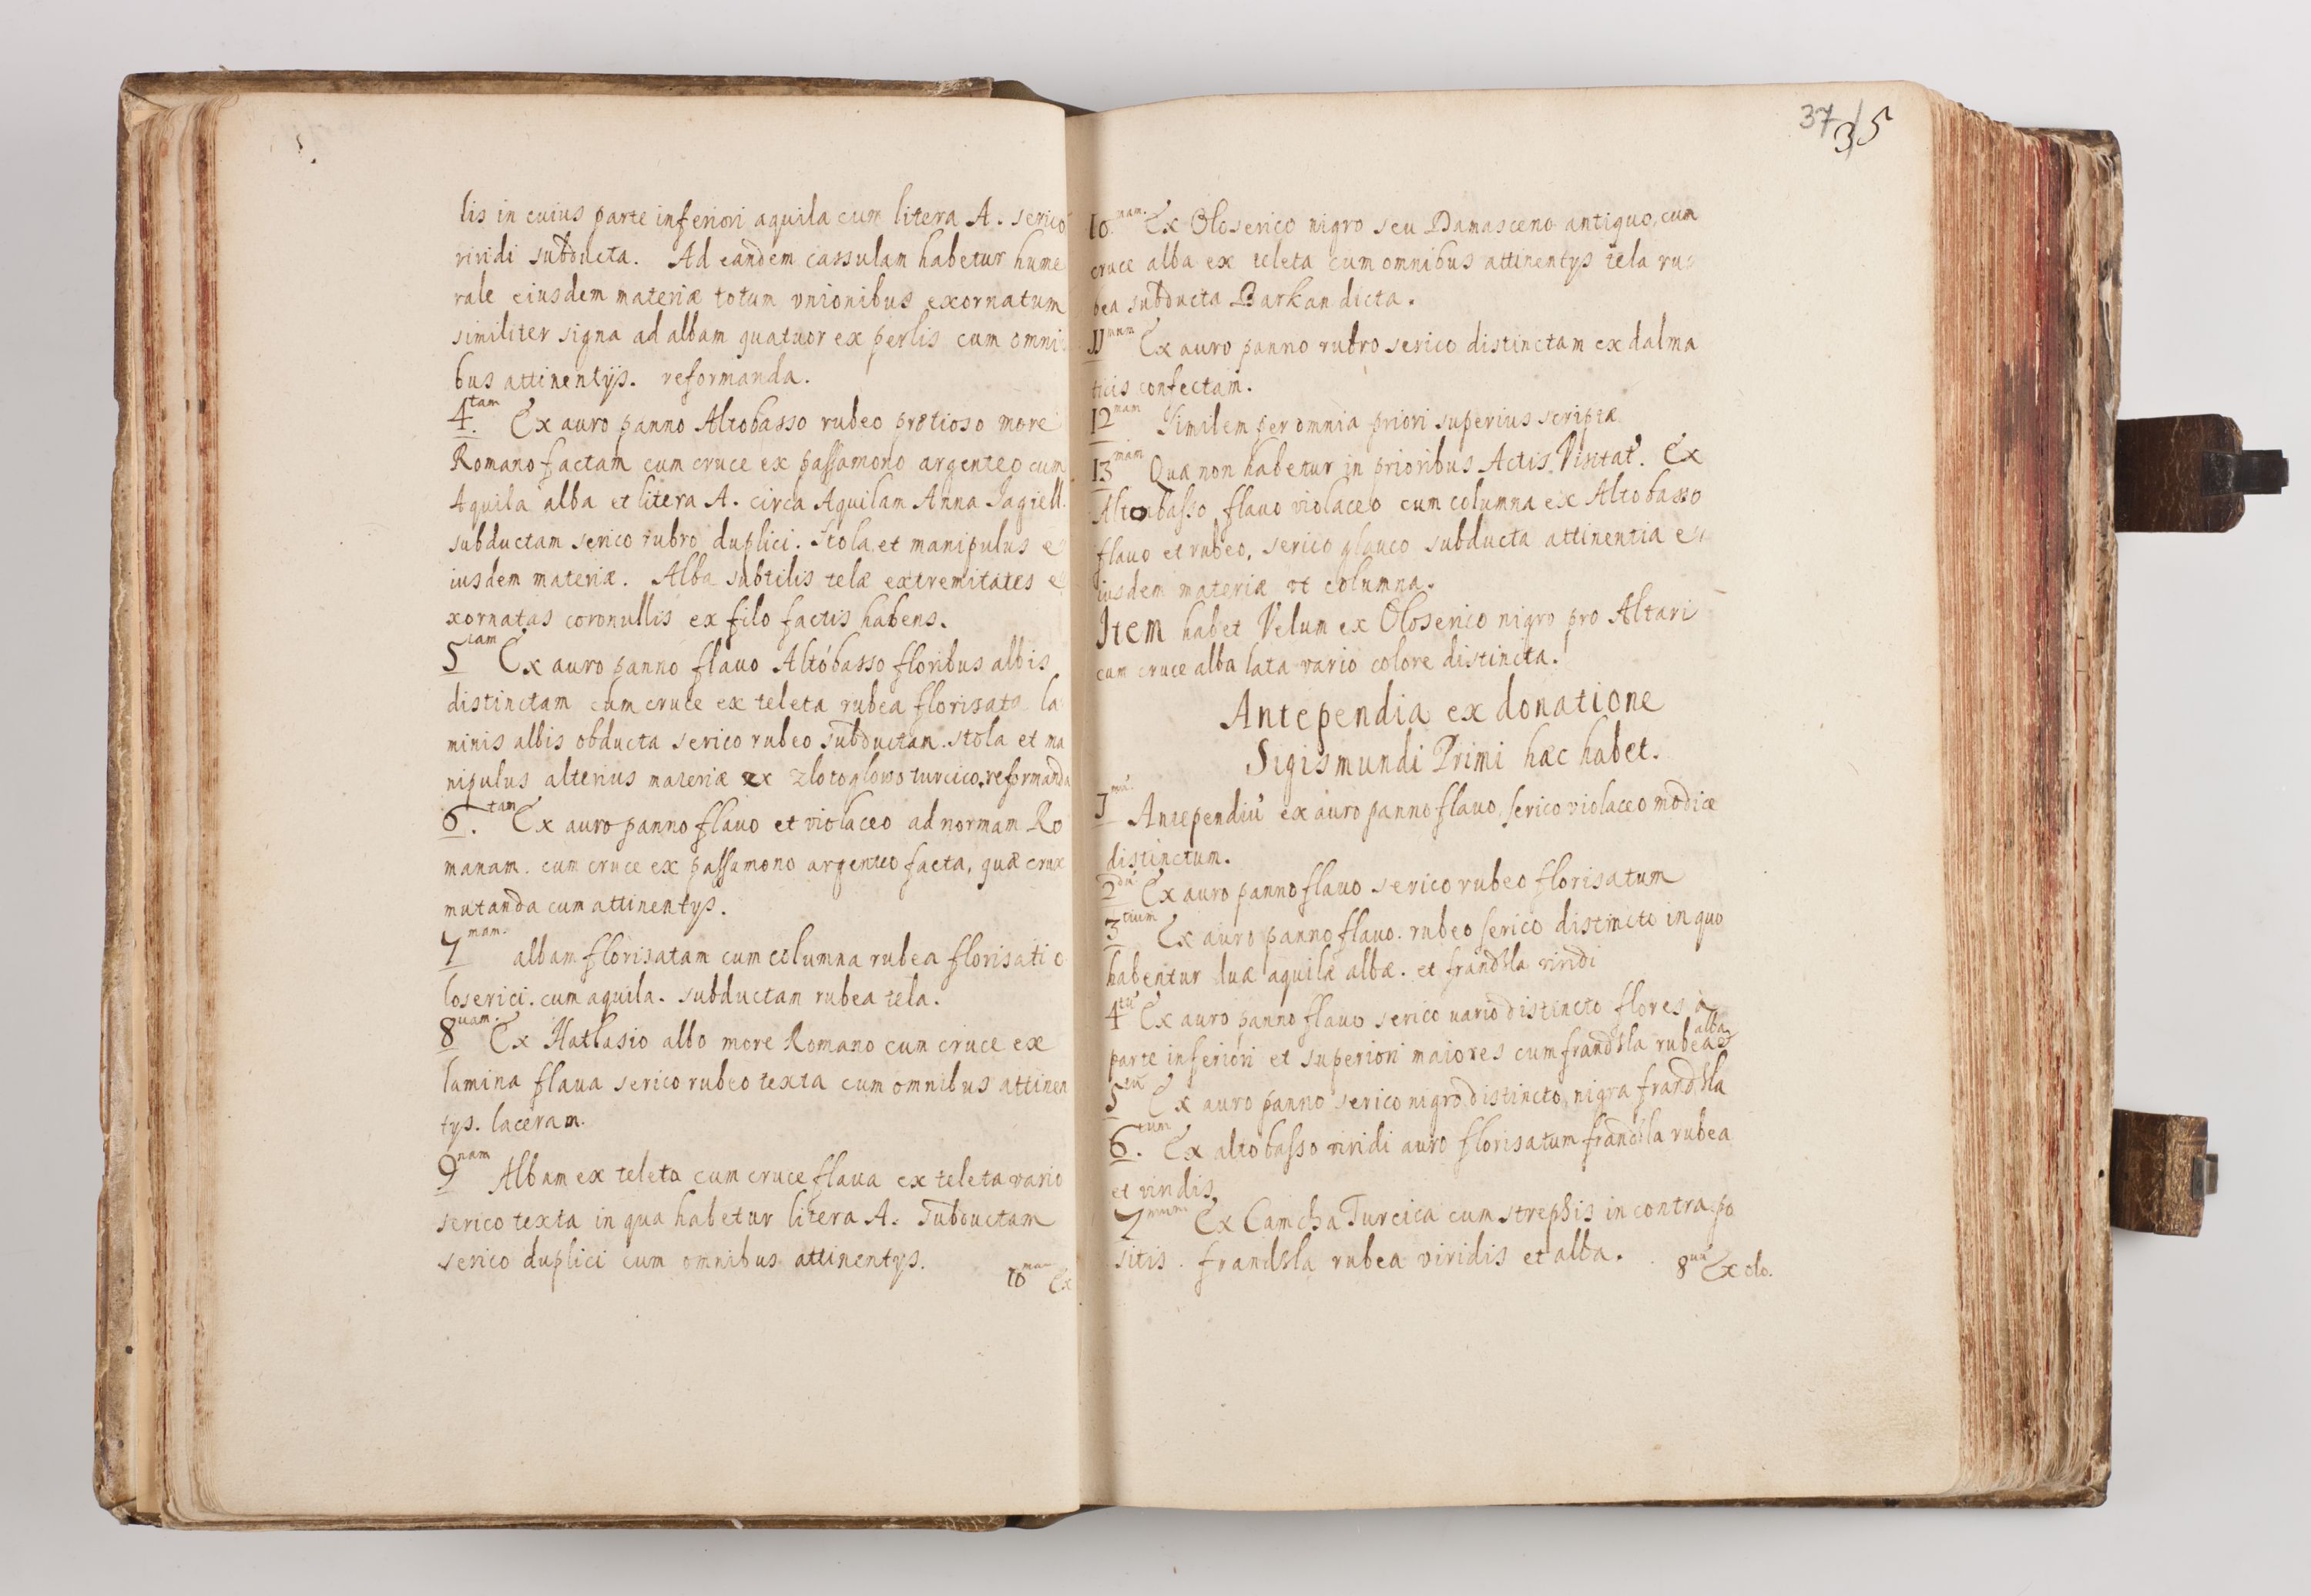 lis in cuius parte inferiori aquila cum litera A. serico
viridi subducta. Ad eandem cassulam habetur hume
rale eiusdem materiæ totum vnionibus exornatum
similiter signa ad albam quatuor ex perlis cum omni
bus attinentÿs. reformanda.
4.tam Ex auro panno Altobasso rubeo prætioso more
Romano factam cum cruce ex passamono argenteo cum
Aquila alba et litera A. circa Aquilam Anna Jagiell.
subductam serico rubro duplici. Stola et manipulus e
iusdem materiæ. Alba subtilis telæ extremitates e
xornatas coronullis ex filo factis habens.
5tam Ex auro panno flauo Altobasso floribus albis
distinctam cum cruce ex teleta rubea florisata la
minis albis obducta serico rubeo subductam. stola et ma
nipulus alterius materiæ ex zlotoglowo turcico. reformanda
6.tam Ex auro panno flauo et violaceo ad normam Ro
manam. cum cruce ex passamono argenteo facta, quæ crux
mutanda cum attinentys.
7mam. albam florisatam cum columna rubea florisati o
loserici. cum aquila. subductam rubea tela.
8uam. Ex Hatlasio albo more Romano cum cruce ex
lamina flaua serico rubeo texta cum omnibus attinen
tys. laceram.
9nam Albam ex teleta cum cruce flaua ex teleta vario
serico texta in qua habetur litera A. Subductam
serico duplici cum omnibus attinentys.
10mam Ex
37 35
10.nam. Ex Oloserico nigro seu Damasceno antiquo, cum
cruce alba ex teleta cum omnibus attinentys tela ru
bea subducta Barkan dicta.
11mam Ex auro panno rubro serico distinctam ex dalma
ticis confectam.
12mam Similem per omnia priori superius scriptæ
13mam Quæ non habetur in prioribus Actis Visitat. Ex
Altombasso flauo violaceo cum columna ex Altobasso
flauo et rubeo, serico glauco subducta attinentia e
iusdem materiæ vt columna.
Item habet Velum ex Oloserico nigro pro Altari
cum cruce alba lata vario colore distincta.
Antependia ex donatione
Sigismundi Primi hæc habet.
1mu. Antependiu ex auro panno flauo, serico violaceo modice
distinctum.
2du Ex auro panno flauo serico rubeo florisatum
3tium Ex auro panno flauo. rubeo serico distincto in quo
habentur duæ aquilæ albæ. et frandzla viridi
4tu Ex auro panno flauo serico uario distincto flores a
parte inferiori et superiori maiores cum frandzla rubea et alba
5tu Ex auro panno serico nigro distincto, nigra frandzla
6.tum Ex altobasso viridi auro florisatum frandzla rubea
et viridis
7mum Ex Camcha Turcica cum strephis in contra po
sitis. frandzla rubea viridis et alba.
8uu Ex olo.